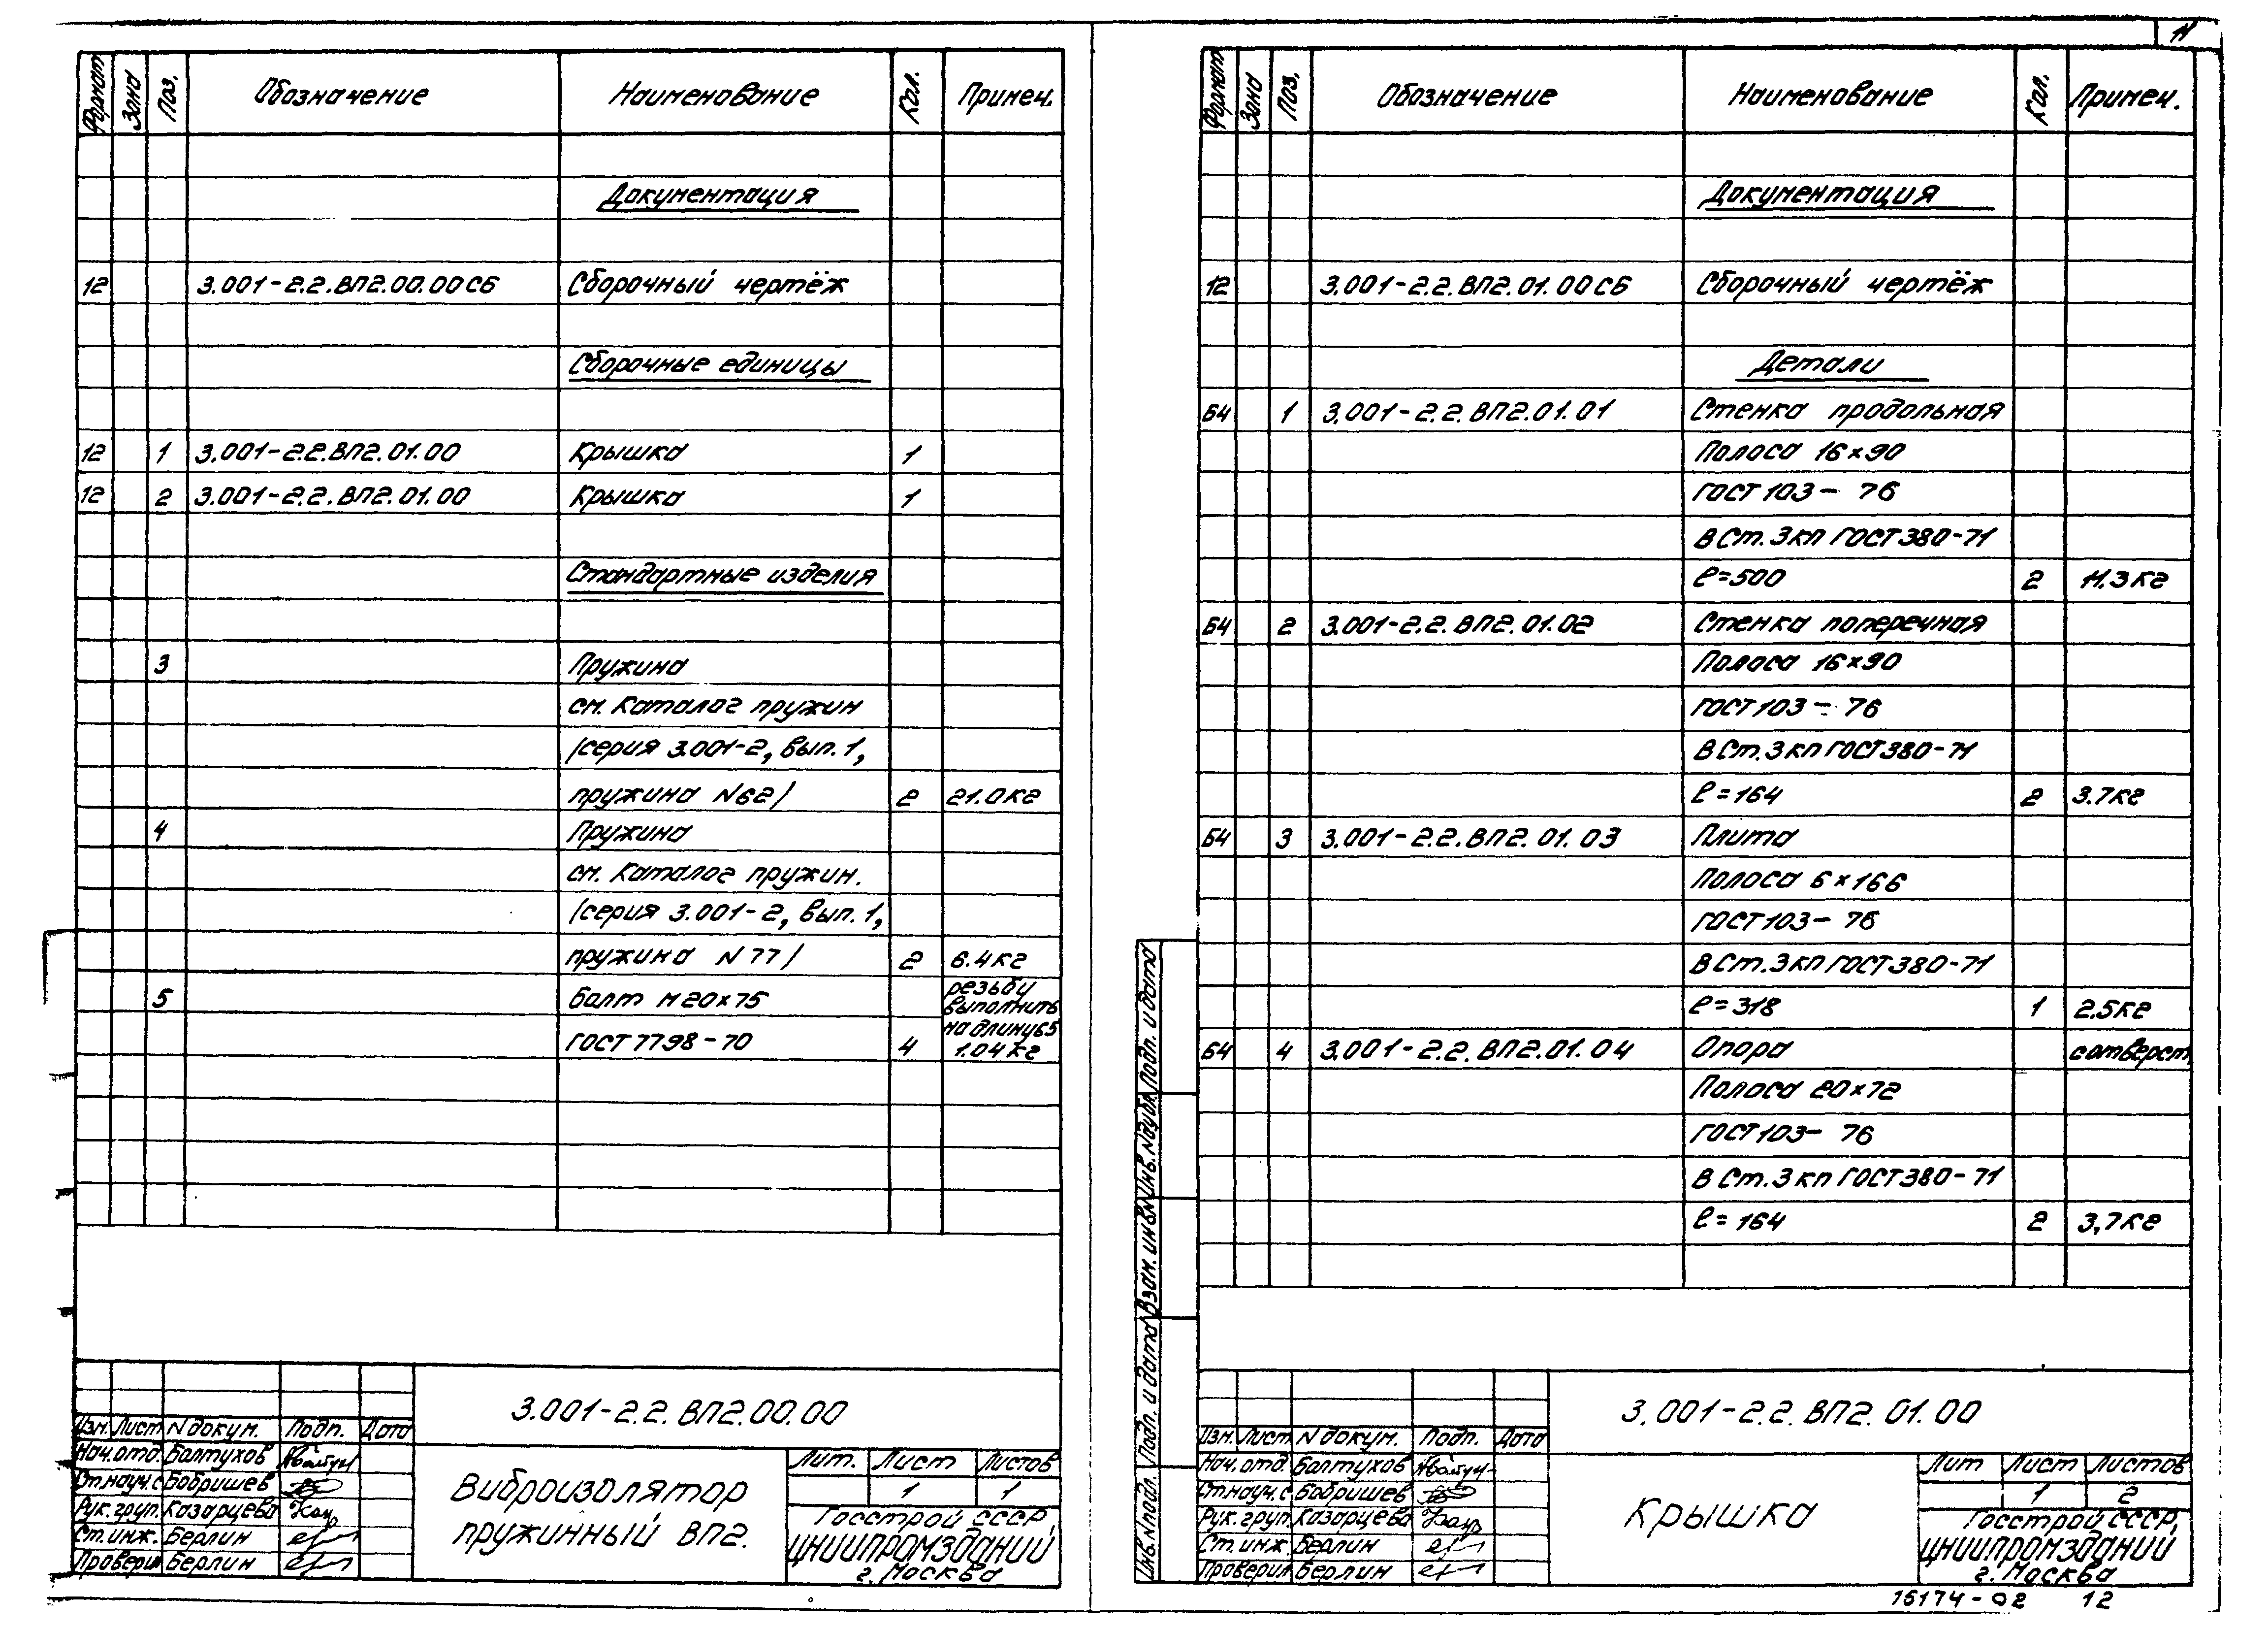 11
Формат Зона Поз. Обозначение Наименование Кол. Примеч.
Документация
12 3.001-2.2.ВП2.00.00СБ Сборочный чертёж
Сборочные единицы
12 1 3.001-2.2.ВП2.01.00 Крышка 1
12 2 3.001-2.2.ВП2.01.00 Крышка 1
Стандартные изделия
3 Пружина
см. Каталог пружин
/серия 3.001-2, вып. 1,
пружина N62/ 2 21.0кг
4 Пружина
см. Каталог пружин.
/серия 3.001-2, вып. 1,
пружина N77/ 2 6.4кг
5 Болт М20×75 резьбу
выполнить
на длину 65
ГОСТ 7798-70 4 1.04кг
3.001-2.2.ВП2.00.00
Изм. Лист N докум. Подп. Дата
Нач.отд. Балтухов
Ст.науч.с Бобришев
Рук.груп. Казарцева
Ст.инж. Берлин
Проверил Берлин
Виброизолятор
пружинный ВП2.
Лит. Лист Листов
1 1
Госстрой СССР,
ЦНИИПРОМЗДАНИЙ
г. Москва
Формат Зона Поз. Обозначение Наименование Кол. Примеч.
Документация
12 3.001-2.2.ВП2.01.00СБ Сборочный чертёж
Детали
Б4 1 3.001-2.2.ВП2.01.01 Стенка продольная
Полоса 16×90
ГОСТ 103- 76
В Ст.3кп ГОСТ 380-71
ℓ=500 2 11.3кг
Б4 2 3.001-2.2.ВП2.01.02 Стенка поперечная
Полоса 16×90
ГОСТ 103- 76
В Ст.3кп ГОСТ 380-71
ℓ=164 2 3.7кг
Б4 3 3.001-2.2.ВП2.01.03 Плита
Полоса 6×166
ГОСТ 103- 76
В Ст.3кп ГОСТ 380-71
ℓ=318 1 2.5кг
Б4 4 3.001-2.2.ВП2.01.04 Опора с отверст.
Полоса 20×72
ГОСТ 103- 76
В Ст.3кп ГОСТ 380-71
ℓ=164 2 3,7кг
Инв.Nподл. Подп. и дата Взам.инв.N Инв.Nдубл. Подп. и дата
3.001-2.2.ВП2.01.00
Изм. Лист N докум. Подп. Дата
Нач.отд. Балтухов
Ст.науч.с Бобришев
Рук.груп. Казарцева
Ст.инж. Берлин
Проверил Берлин
Крышка
Лит Лист Листов
1 2
Госстрой СССР,
ЦНИИПРОМЗДАНИЙ
г. Москва
16174-02 12